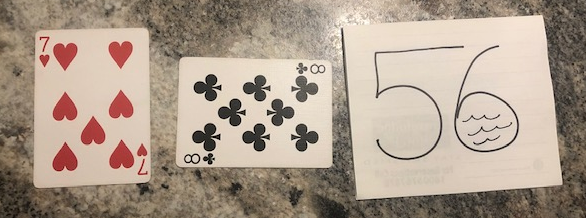 7
7
8
8
56